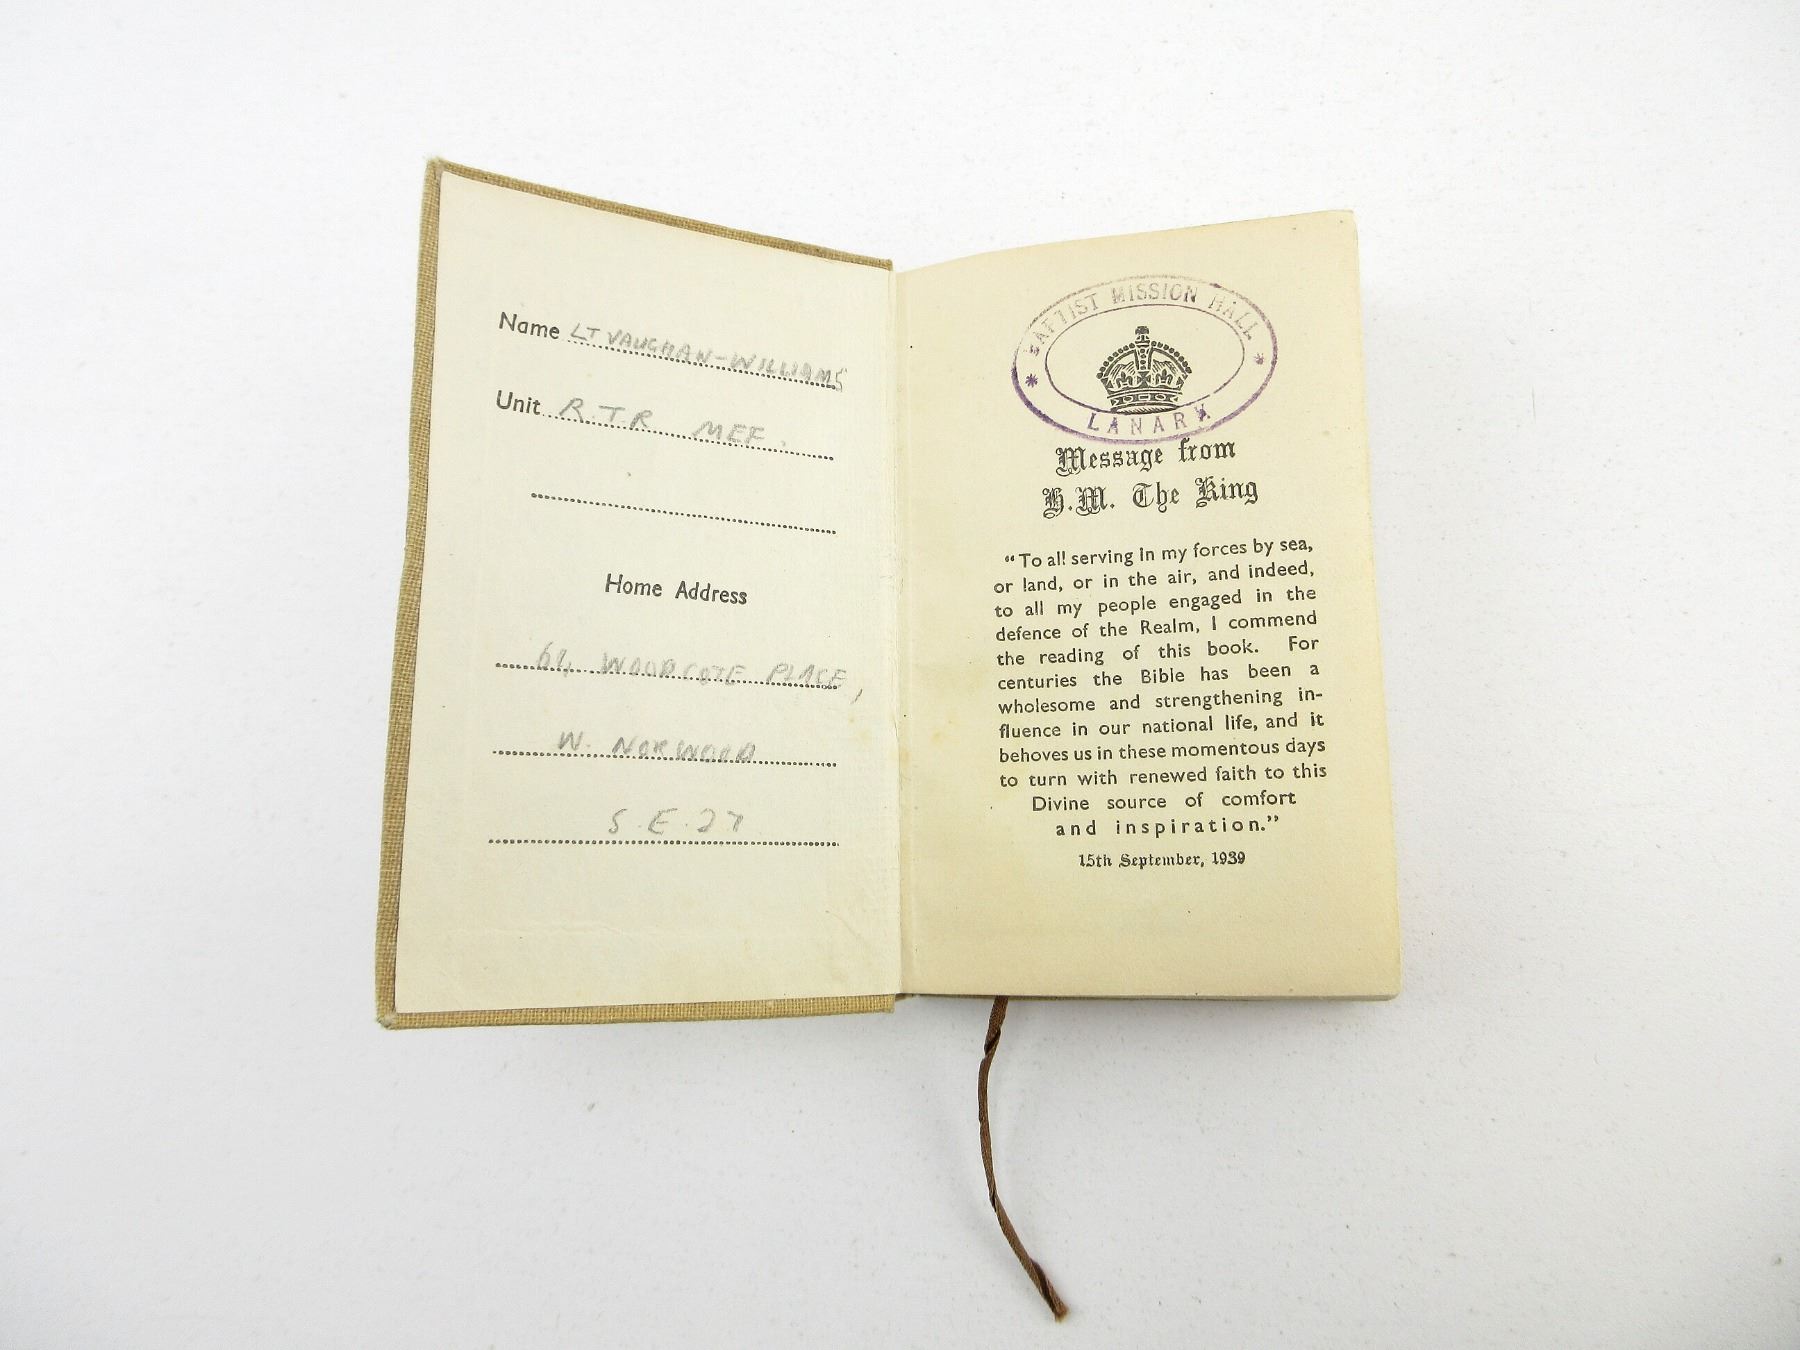 Name LT VAUGHAN-WILLIAMS
Unit R.T.R MEF.
Home Address
WOODCOTE PLACE,
W. NORWOOD
S.E.27
BAPTIST MISSION HALL
LANARK
Message from
H.M. The King
"To all serving in my forces by sea,
or land, or in the air, and indeed,
to all my people engaged in the
defence of the Realm, I commend
the reading of this book. For
centuries the Bible has been a
wholesome and strengthening in-
fluence in our national life, and it
behoves us in these momentous days
to turn with renewed faith to this
Divine source of comfort
and inspiration."
15th September, 1939